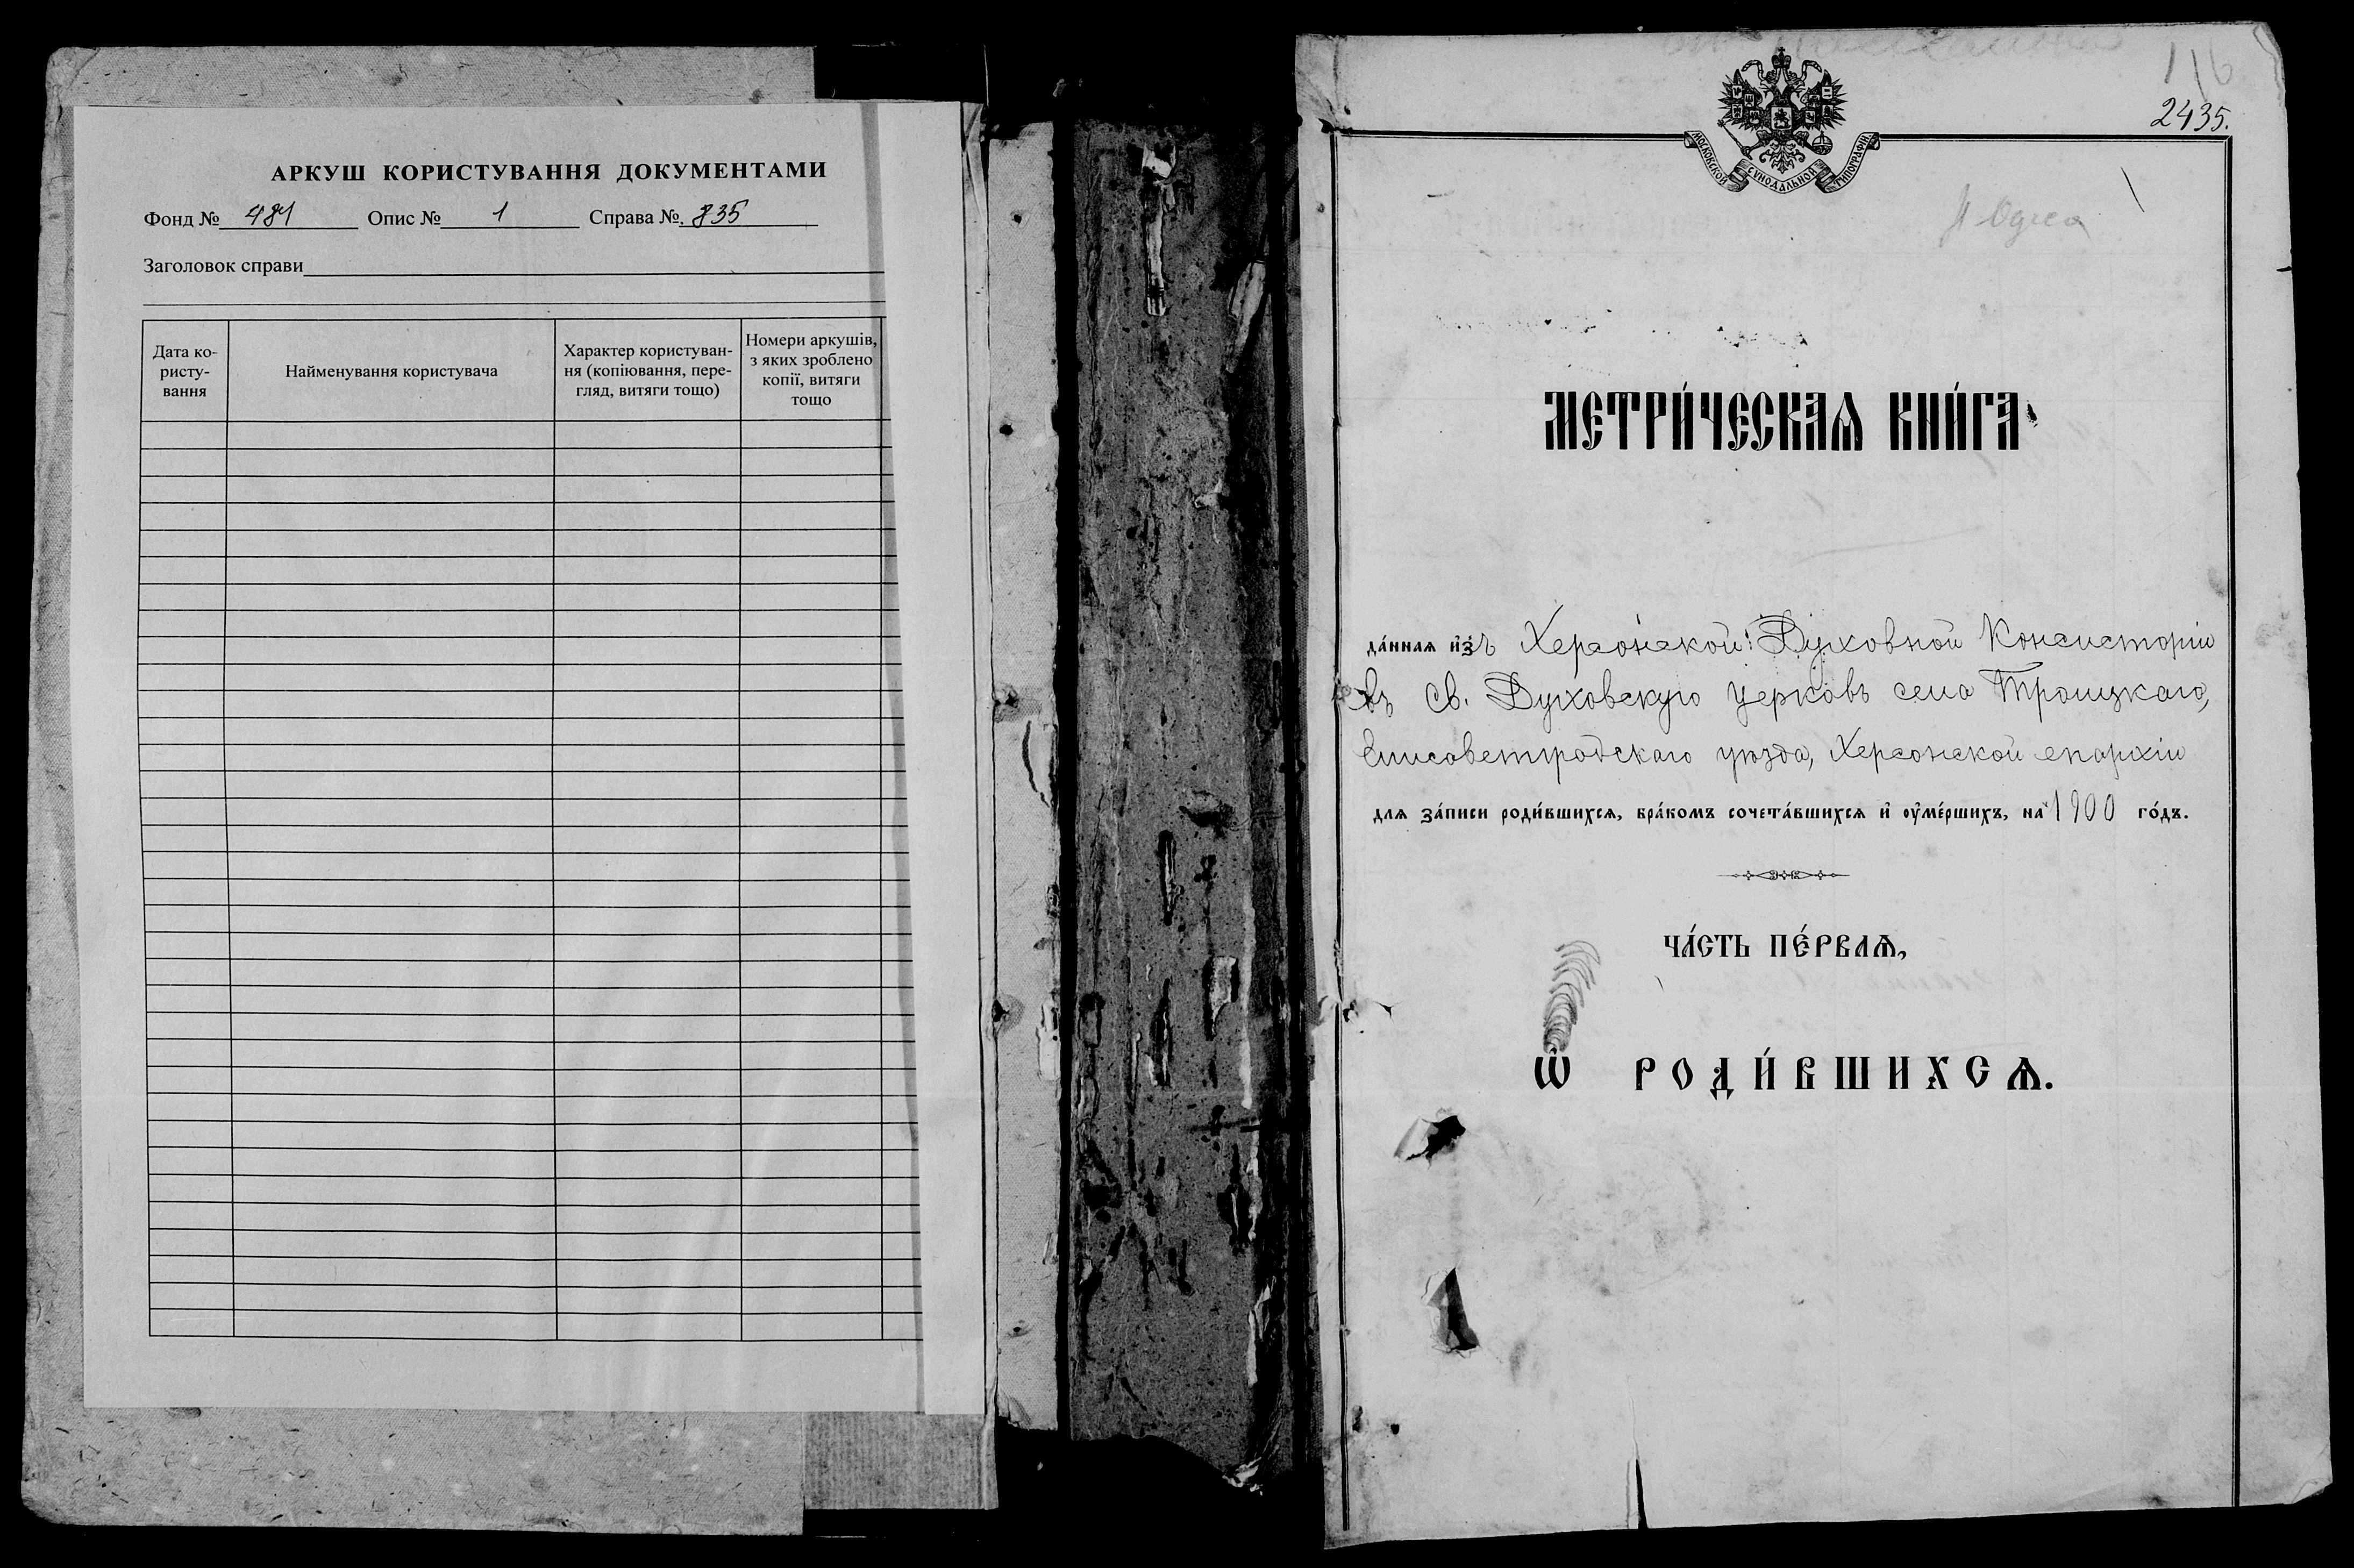 АРКУШ КОРИСТУВАННЯ ДОКУМЕНТАМИ
Фонд № 481 Опис № 1 Справа № 835
Заголовок справи
Дата ко-
ристу-
вання
Найменування користувача
Характер користуван-
ня (копіювання, пере-
гляд, витяги тощо)
Номери аркушів,
з яких зроблено
копії, витяги
тощо
116
2435.
МОСКОВСКОЙ СѴНОДАЛЬНОЙ ТИПОГРАФІИ
Одеса
МЕТРИ́ЧЕСКАѦ КНИ́ГА
да́ннаѧ и҆зъ Херсонской Духовной Консисторіи
въ Св. Духовскую церковь села Троицкаго,
Елисаветградскаго уѣзда, Херсонской епархіи
длѧ за́писи роди́вшихсѧ, бра́комъ сочета́вшихсѧ и҆ оу҆ме́ршихъ, на 1900 го́дъ.
ЧА́СТЬ ПЕ́РВАѦ,
Ѡ҆ РОДИ́ВШИХСѦ.